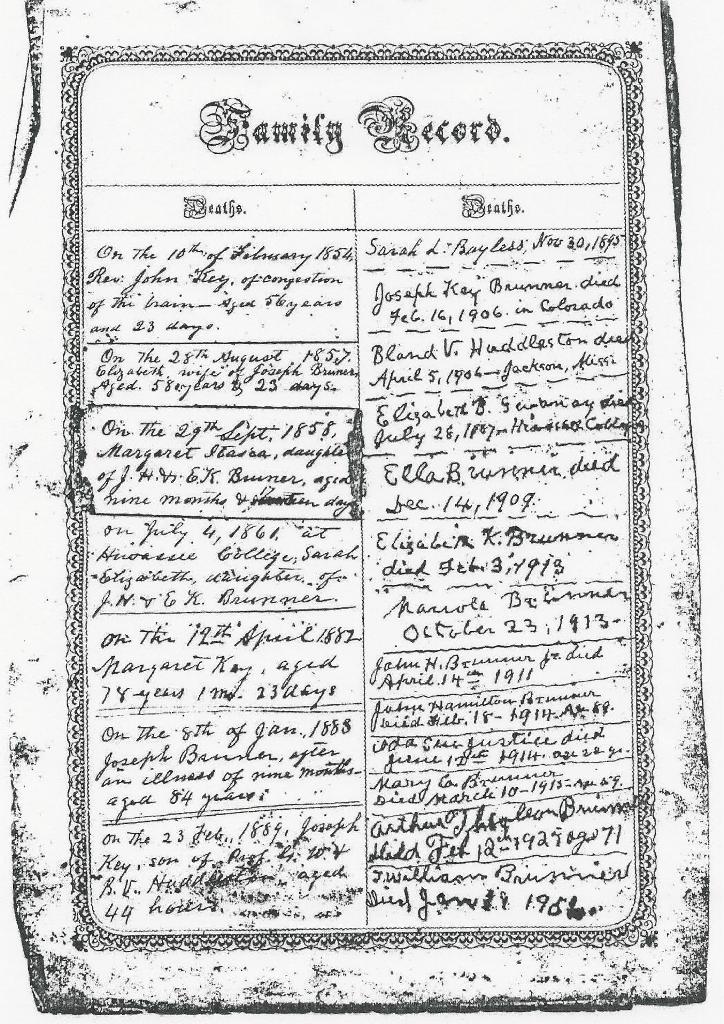 Family Record.
Deaths.
On the 10th of February 1854
Rev. John Key, of congestion
of the brain — Aged 56 years
and 23 days.
On the 28th August, 1857,
Elizabeth, wife of Joseph Bruner,
Aged. 58 years & 23 days.
On the 29th Sept. 1858,
Margaret Itasca, daughter
of J. H. & E. K. Bruner, aged
nine months & days
On July 4, 1861, at
Hiwassee College, Sarah
Elizabeth, daughter of
J. H. & E. K. Brunner.
On the 19th April 1882
Margaret Key, aged
78 years 1 mo. 23 days
On the 8th of Jan., 1883
Joseph Brunner, after
an illness of nine months—
aged 84 years.
On the 23 Feb., 1889, Joseph
Key, son of Prof. G. W. &
B. V. Huddleston, aged
44 hours.
Deaths.
Sarah L. Bayless, Nov 30, 1895
Joseph Key Brunner died
Feb. 16, 1906. in Colorado
Bland V. Huddleston died
April 5, 1906 — Jackson, Missi
Elizabeth B. died
July 28, 1907—
Ella Brunner died
Dec. 14, 1909.
Elizabeth K. Brunner
died Feb. 3, 1913
Brunner
October 23, 1913-
John H. Brunner Jr. died
April 14th 1911
John Hamilton Brunner
Died Feb. 18 - 1914. Age 89.
Ada Sue Justice died
June 1914. age 22 yr.
Mary C. Brunner
Died March 10 - 1915 - Age 59.
Arthur Brunner
Feb 12th 1927 age 71
T. William Brunner
Died Jan